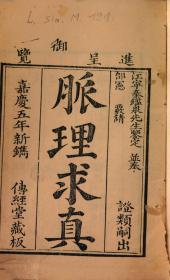 L. sin. M. 191
進呈御覽
江寧秦鑑泉先生鑒定 並奏
部憲
證類嗣出
脈理求真
嘉慶五年新鐫
傳經堂藏板